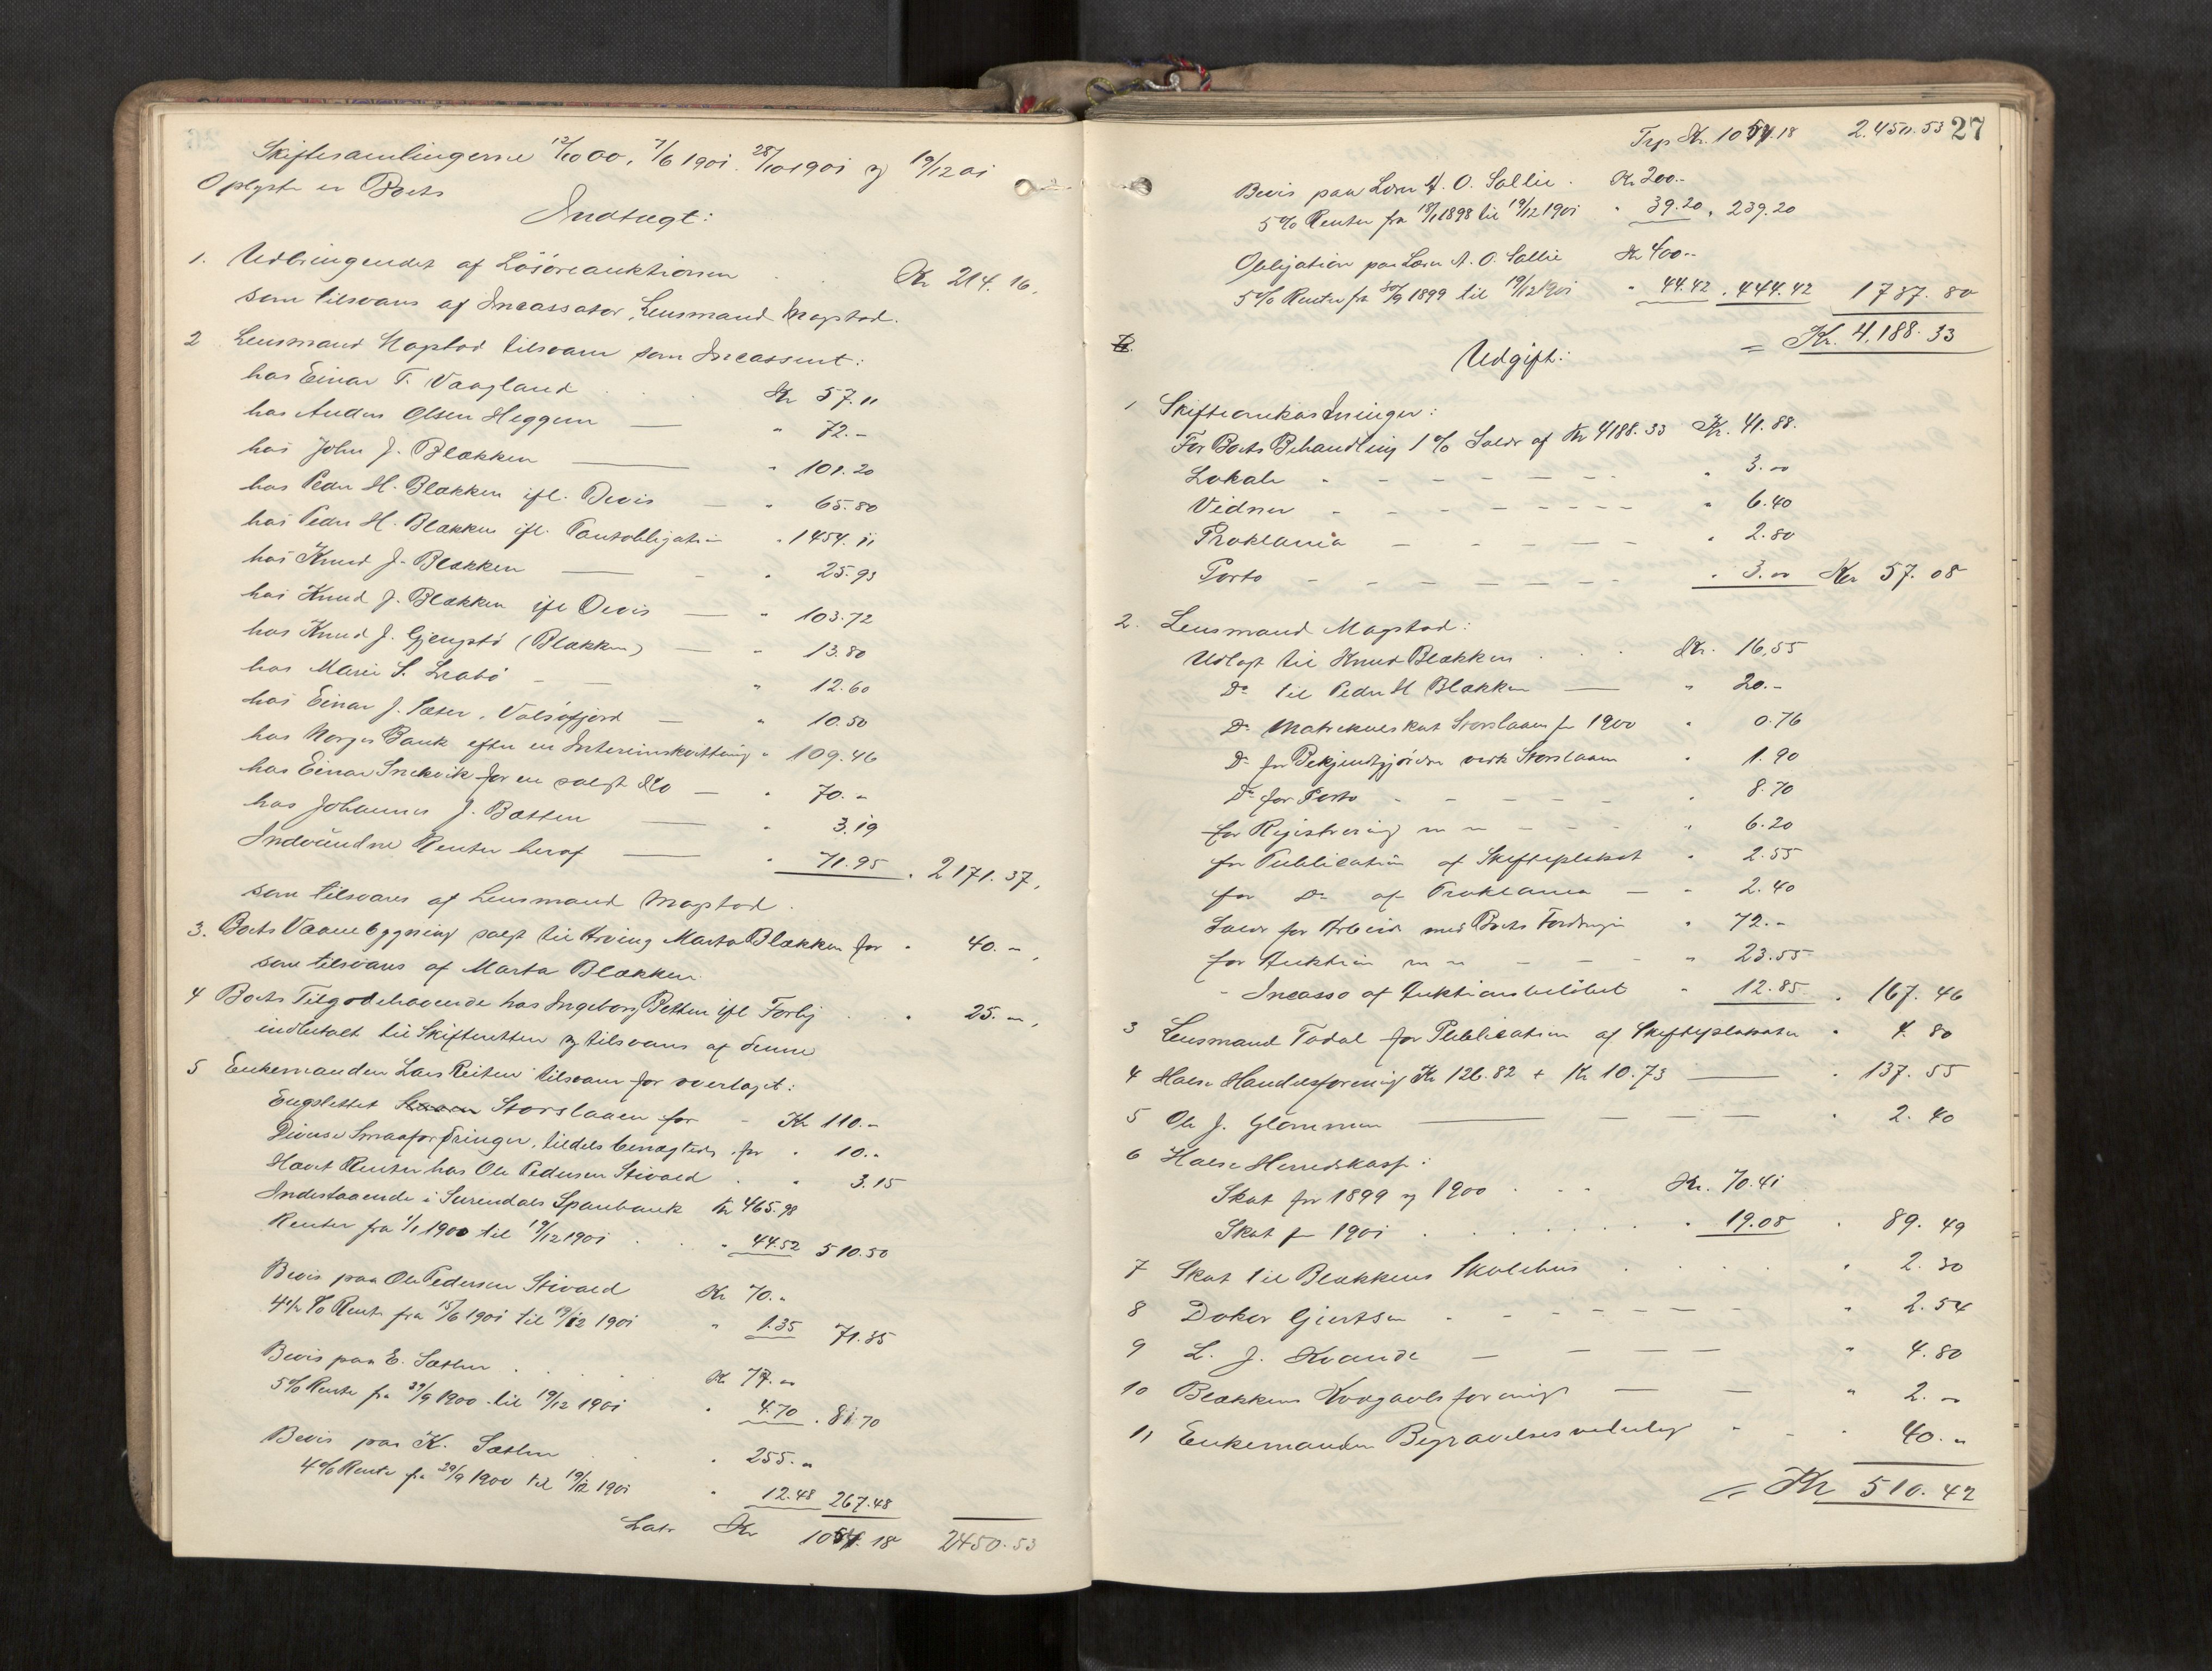 Skiftesamlingerne 12/10 00, 7/6 1901. 28/10 1901 og 19/12 01
Oplyst er Boets
Indtægt:
1. Udbringendet af Lösöreauktionen . . Kr 214.16.
som tilsvares af Incassator, Lensmand Magstad.
2 Lensmand Magstad tilsvarer som Incasseret:
hos Einar T. Vaagland . . . Kr 57.11
hos Anders Olsen Heggem — " 72.–
hos John J. Blækken — " 101.20
hos Peder H. Blækken ifl. Bevis — " 65.80
hos Peder H. Blækken ifl. Pantobligation " 1454.11
hos Knud J. Blækken — - " 25.93
hos Knud J. Blækken ifl Bevis — " 103.72
hos Knud J. Gjengstö (Blækken) — " 13.80
hos Marie S. – — " 12.60
hos Einar J. Sæter, Valsöfjord — " 10.50
hos Norges Bank efter en Interimskvittering " 109.46
hos Einar Snekvik for en solgt Ko — " 70.–
hos Johannes J. Botten — " 3.19
Indvundne Renter heraf — " 71.95 . 2171.37,
som tilsvares af Lensmand Magstad.
3. Boets Vaanebygning solgt til Arving Marta Blækken for " 40.–,
som tilsvares af Marta Blækken.
4 Boets Tilgodehavende hos Ingeborg Botten ifl Forlig . . " 25.–,
indbetalt til Skifteretten og tilsvares af denne
5 Enkemanden Lars Reiten tilsvarer for overtaget:
Engslettet Storslaaen for - Kr 110.–
Diverse Smaafordringer, tildels benægtede, for " 10.–
Hævet Renter hos Ole Pedersen Stivold . " 3.15
Indestaaende i Surendals Sparebank Kr 465.98
Renter fra 1/1 1900 til 19/12 1901 . . " 44.52 510.50
Bevis paa Ole Pedersen Stivold Kr 70.–
4½ % Rente fra 15/6 1901 til 19/12 1901 " 1.35 71.35
Bevis paa E. Sæther . . . Kr 77.–
5% Rente fra 29/9 1900 til 19/12 1901 " 4.70 . 81.70
Bevis paa K. Sæther . . " 255.–
4% Rente fra 29/9 1900 til 19/12 1901 " 12.48 267.48
Latr Kr 1054.18 2450.53
27
Trsp Kr. 1054.18 2.450.53
Bevis paa Lars A. O. Sollie . Kr 200.–
5% Renter fra 18/1 1898 til 19/12 1901 " 39.20 , 239.20
Obligation paa Lars A. O. Sollie Kr 400.–
5% Renter fra 30/9 1899 til 19/12 1901 " 44.42 . 444.42 1737.80
= Kr. 4,188.33
Udgift:
1 Skifteomkostninger:
For Boets Behandling 1 % Salær af Kr 4188.33 Kr. 41.88.
Lokale - - - - - - - " 3.00
Vidner - - - - - - - " 6.40
Proklama - - - - - " 2.80
Porto - - - - - - - " 3.00 Kr 57.08
2. Lensmand Magstad:
Udlagt til Knud Blækken . . . Kr. 16,55
Do til Peder H Blækken — " 20.–
Do Matrikulskat Storslaaen for 1900 " 0.76
Do for Bekjendtgjörelse vedk Storslaaen " 1.90
Do for Porto - - - - - " 8.70
for Registrering m m - - - " 6.20
for Publication af Skifteplakat " 2.55
for Do af Proklama — " 2.40
Salær for Arbeide med Boets Fordringer " 72.–
for Auktion m m - - - " 23.55
- Incasso af Auktionsbelöbet " 12.85 . 167.46
3 Lensmand Todal for Publication af Skifteplakater " 4.80
4 Halse Handelsforening Kr 126.82 + Kr 10.73 — " 137.55
5 Ole J. Glömmen — — — " 2.40
6 Halse Herredskasse:
Skat for 1899 og 1900 . . - Kr. 70.41
Skat for 1901 . . . . . . " 19.08 " 89.49
7 Skat til Blækkens Skolehus . . . . . " 2.30
8 Doktor Giertsen - - - - - - - " 2.54
9 L. J. Kvande — — — — " 4.80
10 Blækkens Kvægavlsforening — — " 2.–
11 Enkemanden Begravelsesvederlag - - . 40.–
= Kr 510.42